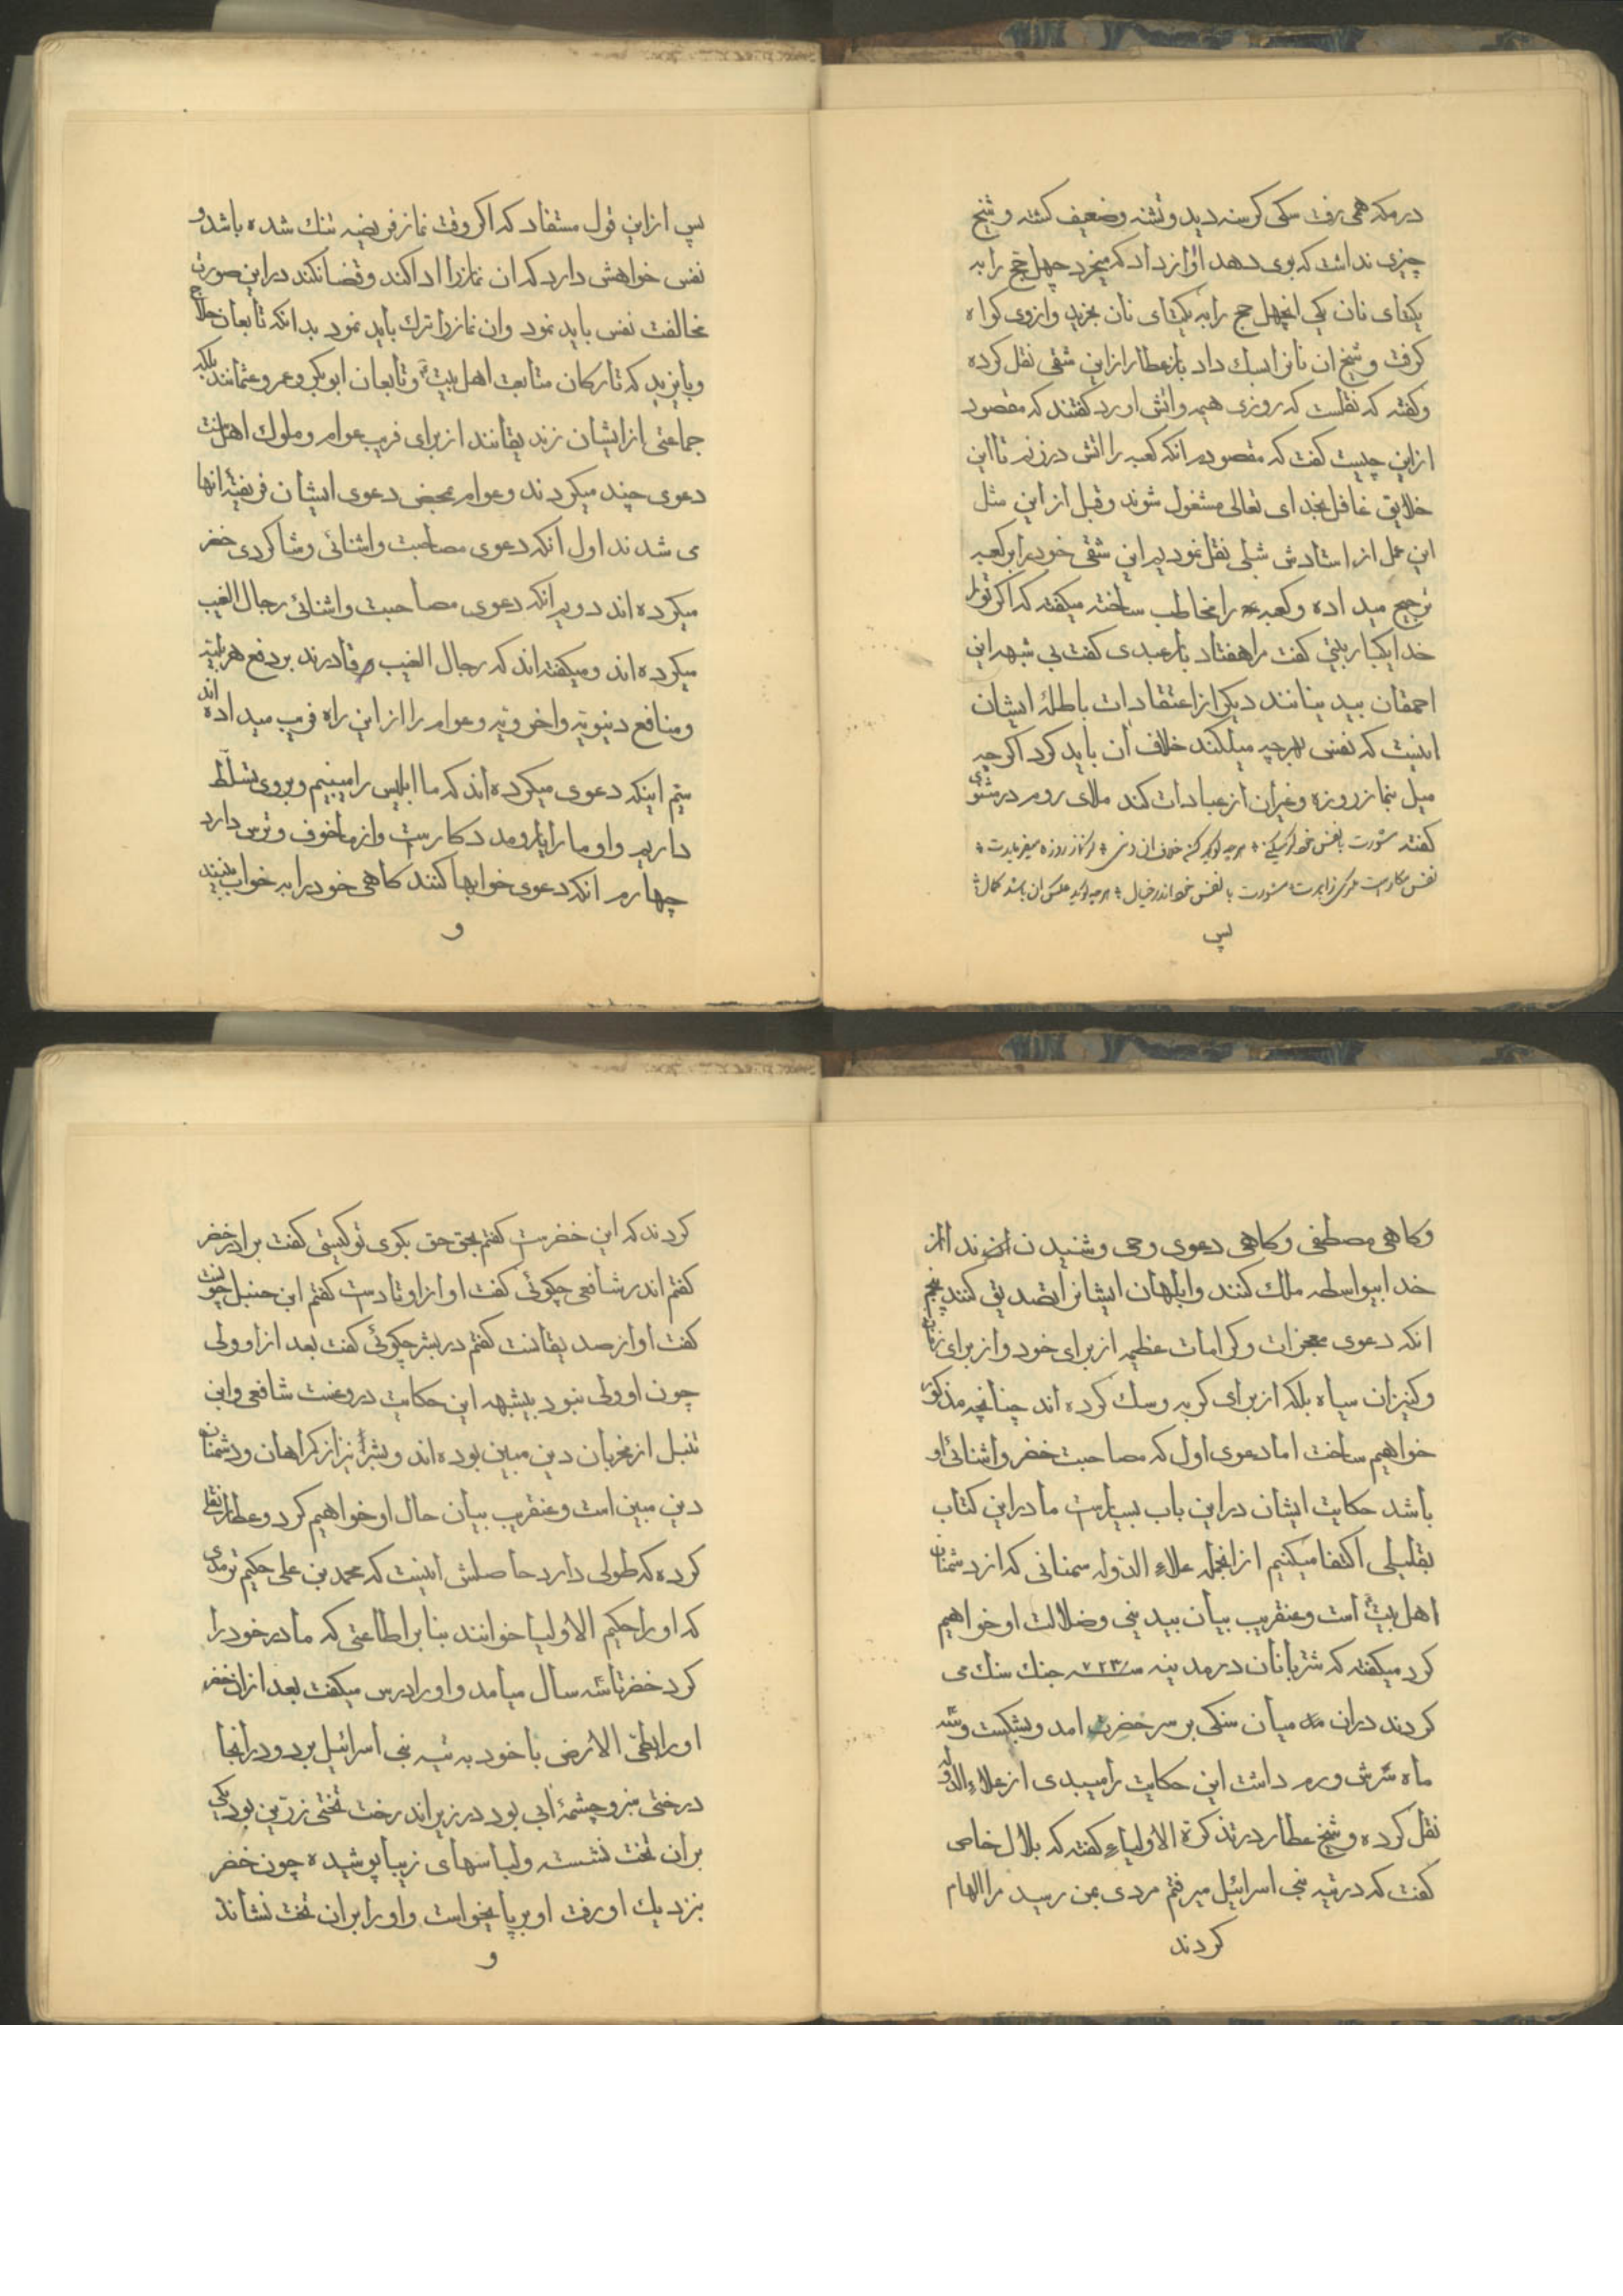 در مکه همی رفت سکی کرسنه دید و تشنه و ضعیف کشته و شیخ
چیزی نداشت که بوی دهد اواز داد که میخرد چهل حج را به
یکتای نان یکی انچهل حج را به یکتای نان بخرید و ازوی کواه
کرفت و شیخ ان نانرا بسک داد باز عطار ازاین شقی نقل کرده
و کفته که نقلست که روزی هیمه و اتش اورد کفتند که مقصود
ازاین چیست کفت که مقصودم انکه کعبه را اتش درزنم تا این
خلایق غافل بخدای تعالی مشغول شوند و قبل ازاین مثل
این عمل از استادش شبلی نقل نمودیم این شقی خود را بر کعبه
ترجیح میداده و کعبه را مخاطب ساخته میکفته که اکر تو را
خدا یکبار بیتی کفت مرا هفتاد بار عبدی کفت بی شبهه این
احمقان بیدینانند دیکر از اعتقادات باطلهٔ ایشان
اینست که نفس بهرچه میلکند خلاف آن باید کرد اکرچه
میل بنماز روزه و غیران از عبادات کند ملای روم در مثنوی
کفته مشورت با نفس خود کر میکنی هرچه کوید کن خلاف ان دنی کر نماز روزه میفرمایدت
نفس مکارست مکری زایدت مشورت با نفس خود اندر خیال هرچه کوید عکس ان باشد کمال
پس
پس ازاین قول مستفاد که اکر وقت نماز فریضه تنک شده باشد و
نفس خواهش دارد که ان نماز را ادا کند و قضا نکند دراین صورت
مخالفت نفس باید نمود وان نماز را ترک باید نمود بدانکه تابعان حلاج
و بایزید که تارکان متابعت اهل بیت و تابعان ابوبکر و عمر و عثمانند بلکه
جماعتی از ایشان زندیقانند از برای فریب عوام و ملوک اهل سنت
دعوی چند میکردند و عوام بمحض دعوی ایشان فریفتهٔ انها
می شدند اول انکه دعوی مصاحبت و اشنائی و شاکردی خضر
میکرده اند دویم انکه دعوی مصاحبت و اشنائی رجال الغیب
میکرده اند و میکفته اند که رجال الغیب قادرند بر دفع هر بلیه
و منافع دنیویه و اخرویه و عوام را از این راه فریب میداده اند
سیّم اینکه دعوی میکرده اند که ما ابلیس را میبینیم و بروی تسلّط
داریم و او ما را یار و مددکارست و از ما خوف و ترس دارد
چهارم انکه دعوی خوابها کنند کاهی خود را بخواب بینند
و
و کاهی مصطفی و کاهی دعوی وحی و شنیدن از
خدا بیواسطه ملک کنند و ابلهان ایشانرا تصدیق کنند پنجم
انکه دعوی معجزات و کرامات عظیم از برای خود و از برای زنان
و کنیزان سیاه بلکه از برای کربه و سک کرده اند چنانچه مذکور
خواهیم ساخت اما دعوی اول که مصاحبت خضر و اشنائی او
باشد حکایت ایشان دراین باب بسیارست ما دراین کتاب
بقلیلی اکتفا میکنیم از انجمله علاء الدوله سمنانی که از دشمنان
اهل بیت است و عنقریب بیان بیدینی و ضلالت او خواهیم
کرد میکفته که شتربانان در مدینه سنه ۷۲۳ جنک سنک می
کردند دران میان سنکی بر سر خضر امد و بشکست و سه
ماه سرش ورم داشت این حکایت را میبدی از علاء الدوله
نقل کرده و شیخ عطار در تذکرة الاولیاء کفته که بلال خاص
کفت که در تیه بنی اسرائیل میرفتم مردی بمن رسید مرا الهام
کردند
کردند که این خضرست کفتم بحق حق بکوی تو کیستی کفت برادر خضر
کفتم اندر شافعی چکوئی کفت او از اوتادست کفتم ابن حنبل چونست
کفت او از صدیقانست کفتم در بشر چکوئی کفت بعد از او ولی
چون او ولی نبود بیشبهه این حکایت دروغست شافعی و ابن
حنبل از مخربان دین مبین بوده اند و بشر نیز از کمراهان و دشمنان
دین مبین است و عنقریب بیان حال او خواهیم کرد و عطار نقلی
کرده که طولی دارد حاصلش اینست که محمد بن علی حکیم ترمدی
که او را حکیم الاولیا خوانند بنابر اطاعتی که مادر خود را
کرد خضر تا سه سال میامد و او را درس میکفت بعد ازان خضر
او را بطی الارض با خود به تیه بنی اسرائیل برد و درانجا
درختی سبز و چشمهٔ ابی بود در زیر اندرخت تختی زرّین بود یکی
بران تخت نشسته و لباسهای زیبا پوشیده چون خضر
بنزدیک او رفت او برپا بخواست و او را بران تخت نشاند
و